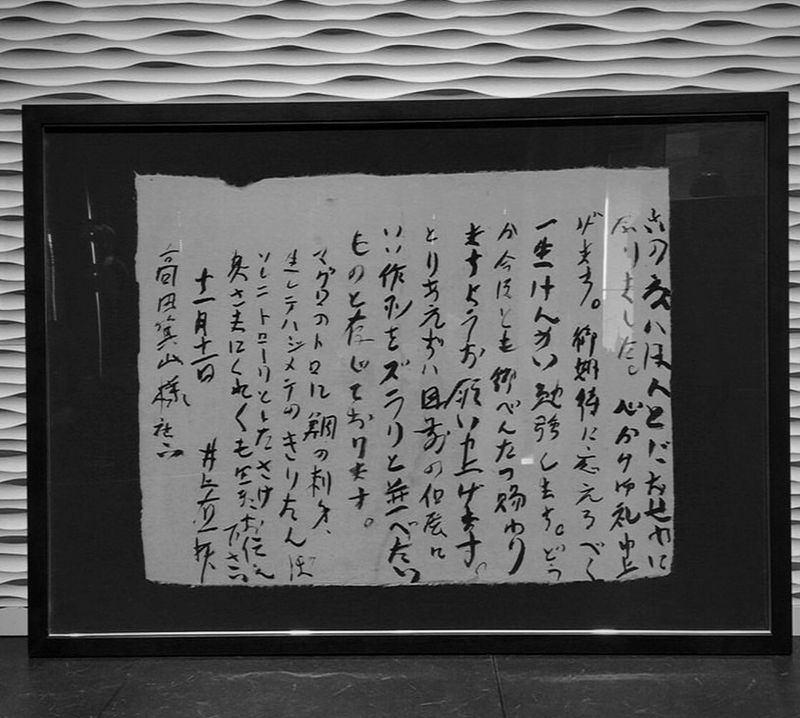 この度ハほんとにお世話に
なりました。心から御礼申上
げます。御期待に応えるべく
一生けんめい勉強します。どう
か今后とも御べんたつ賜わり
ますようお願い上げます。
とりあえずハ目前の個展に
いい作品をズラリと並べたい
ものと存じております。
マグロのトロに鯛の刺身、
生レテハジメテのきりたんぽ
ソレニトローリとしたさけ
奥さまにくれぐれも お伝え下さい
十一月十一日
高田 山様